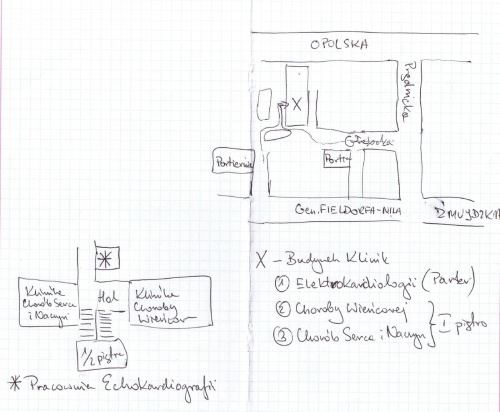 OPOLSKA
Prądnicka
X
Portiernia
Port
Gen. FIELDORFA-NILA
ŻMUJDZKA
X - Budynek Klinik
① Elektrokardiologii (Parter)
② Choroby Wieńcowej
③ Chorób Serca i Naczyń
I piętro
*
Klinika
Chorób Serca
i Naczyń
Hol
Klinika
Choroby
Wieńcow
1/2 piętra
* Pracownia Echokardiografii